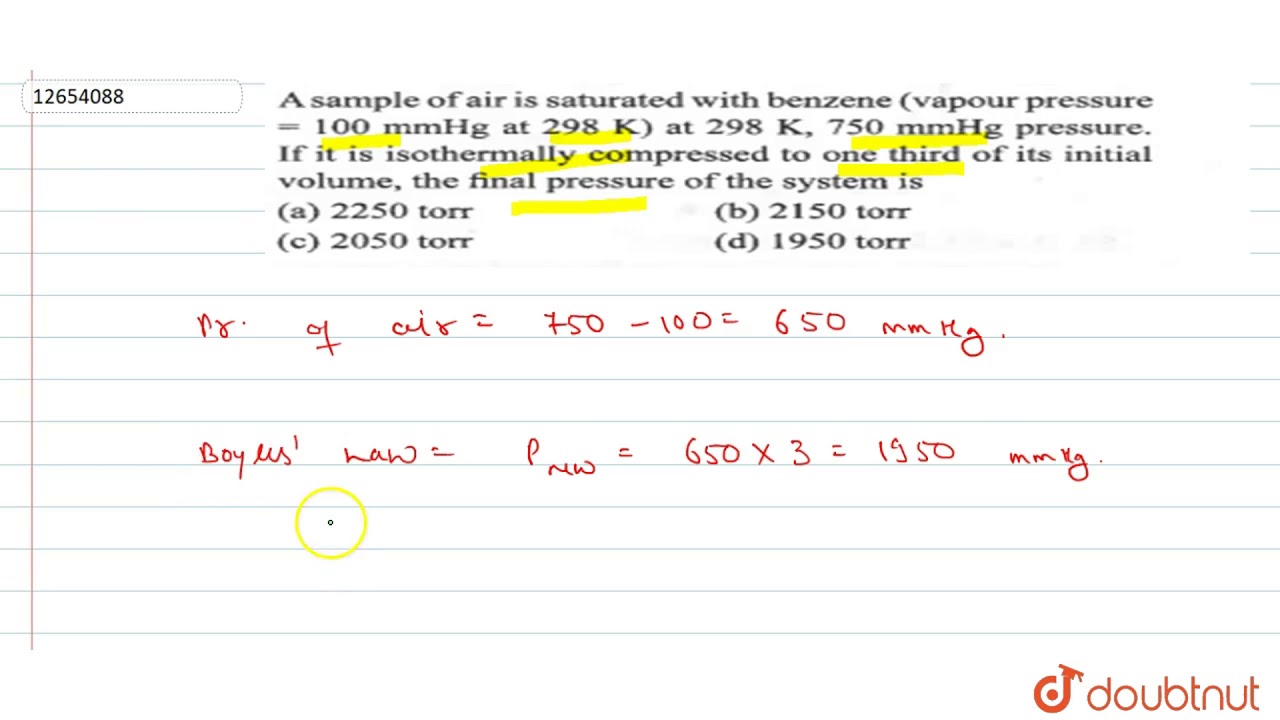 12654088
A sample of air is saturated with benzene (vapour pressure
= 100 mmHg at 298 K) at 298 K, 750 mmHg pressure.
If it is isothermally compressed to one third of its initial
volume, the final pressure of the system is
(a) 2250 torr (b) 2150 torr
(c) 2050 torr (d) 1950 torr
Pr. of air = 750 - 100 = 650 mmHg.
Boyles' Law = P new = 650 × 3 = 1950 mmHg.
doubtnut